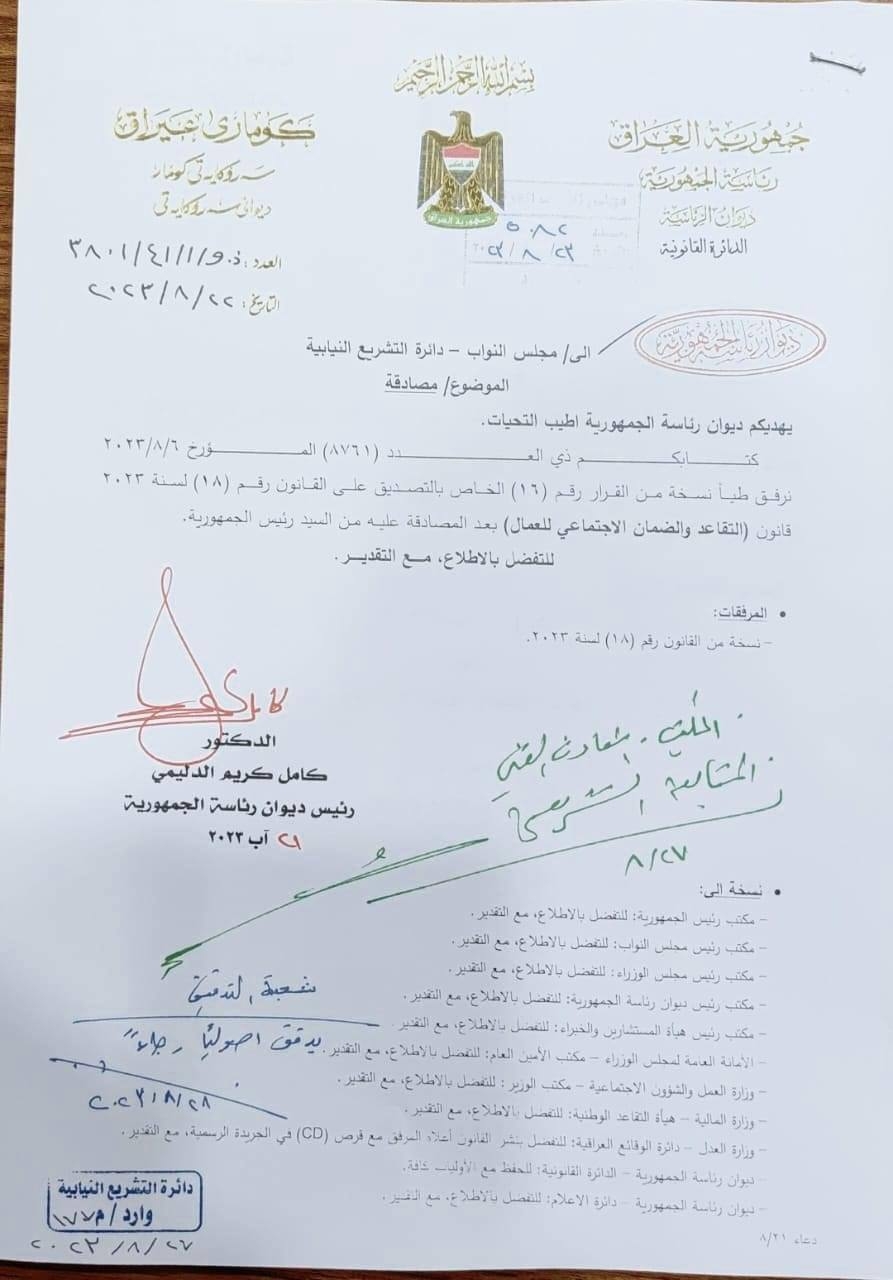 بسم الله الرحمن الرحيم
جمهورية العراق
رئاسة الجمهورية
ديوان الرئاسة
الدائرة القانونية
كۆماری عێراق
سەرۆكایەتی كۆمار
دیوانی سەرۆكایەتی
جمهورية العراق
٥٠٨٢
٢٠٢٣/٨/٢٣
العدد: ذ.و/١/٤١/٣٨٠١
التاريخ: ٢٠٢٣/٨/٢٢
ديوان رئاسة الجمهورية
الى/ مجلس النواب – دائرة التشريع النيابية
الموضوع/ مصادقة
يهديكم ديوان رئاسة الجمهورية اطيب التحيات.
كتابكم ذي العدد (٨٧٦١) المؤرخ ٢٠٢٣/٨/٦
نرفق طياً نسخة من القرار رقم (١٦) الخاص بالتصديق على القانون رقم (١٨) لسنة ٢٠٢٣
قانون (التقاعد والضمان الاجتماعي للعمال) بعد المصادقة عليه من السيد رئيس الجمهورية.
للتفضل بالاطلاع، مع التقدير.
• المرفقات:
– نسخة من القانون رقم (١٨) لسنة ٢٠٢٣.
الدكتور
كامل كريم الدليمي
رئيس ديوان رئاسة الجمهورية
٢١ آب ٢٠٢٣
٨/٢٧
• نسخة الى:
– مكتب رئيس الجمهورية: للتفضل بالاطلاع، مع التقدير.
– مكتب رئيس مجلس النواب: للتفضل بالاطلاع، مع التقدير.
– مكتب رئيس مجلس الوزراء: للتفضل بالاطلاع، مع التقدير.
– مكتب رئيس ديوان رئاسة الجمهورية: للتفضل بالاطلاع، مع التقدير.
– مكتب رئيس هيأة المستشارين والخبراء: للتفضل بالاطلاع، مع التقدير.
– الأمانة العامة لمجلس الوزراء – مكتب الأمين العام: للتفضل بالاطلاع، مع التقدير.
– وزارة العمل والشؤون الاجتماعية – مكتب الوزير: للتفضل بالاطلاع، مع التقدير.
– وزارة المالية – هيأة التقاعد الوطنية: للتفضل بالاطلاع، مع التقدير.
– وزارة العدل – دائرة الوقائع العراقية: للتفضل بنشر القانون أعلاه المرفق مع قرص (CD) في الجريدة الرسمية، مع التقدير.
– ديوان رئاسة الجمهورية – الدائرة القانونية: للحفظ مع الأوليات كافة.
– ديوان رئاسة الجمهورية – دائرة الاعلام: للتفضل بالاطلاع، مع التقدير.
شعبة التدقيق
يدقق اصولياً رجاءً
٢٠٢٣/٨/٢٨
دائرة التشريع النيابية
وارد/م ١٧٧
٢٠٢٣/٨/٢٧
دعاء ٨/٢١